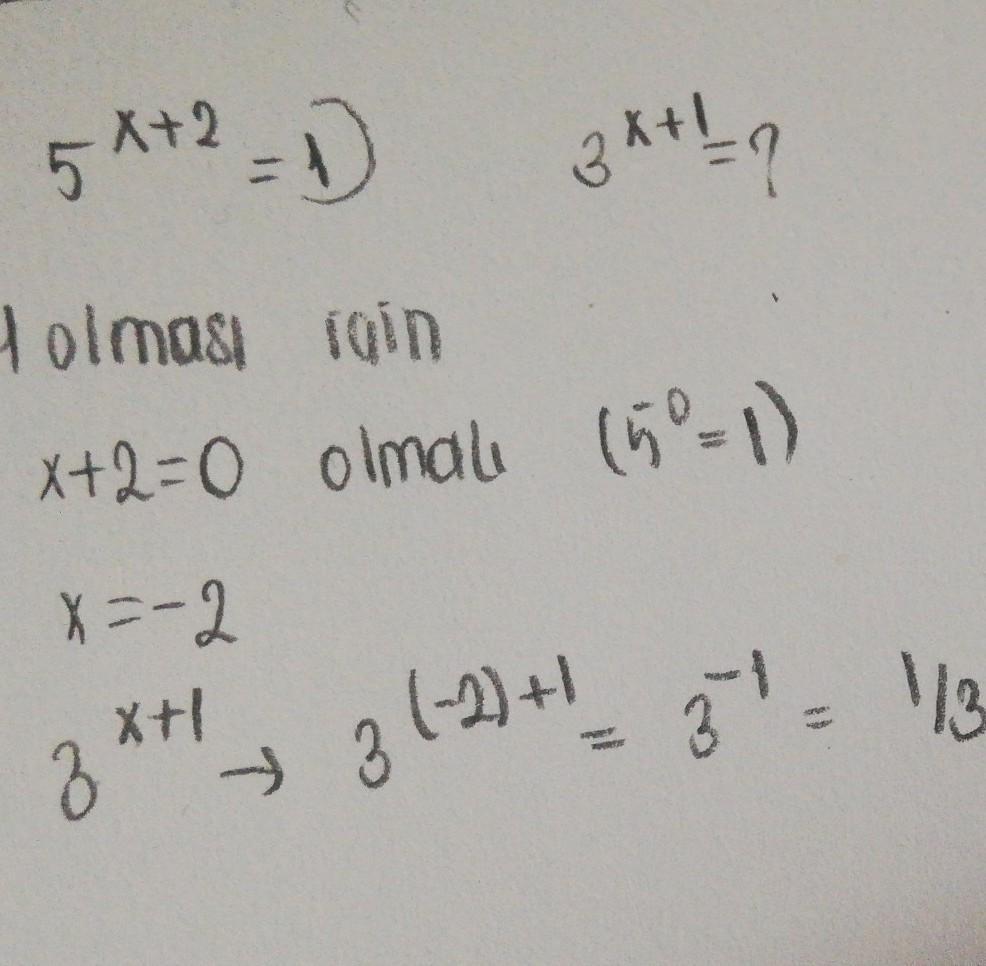 5^(x+2) = 1) 3^(x+1) = ?
1 olması için
x+2=0 olmalı (5^0=1)
x=-2
3^(x+1) → 3^((-2)+1) = 3^(-1) = 1/3